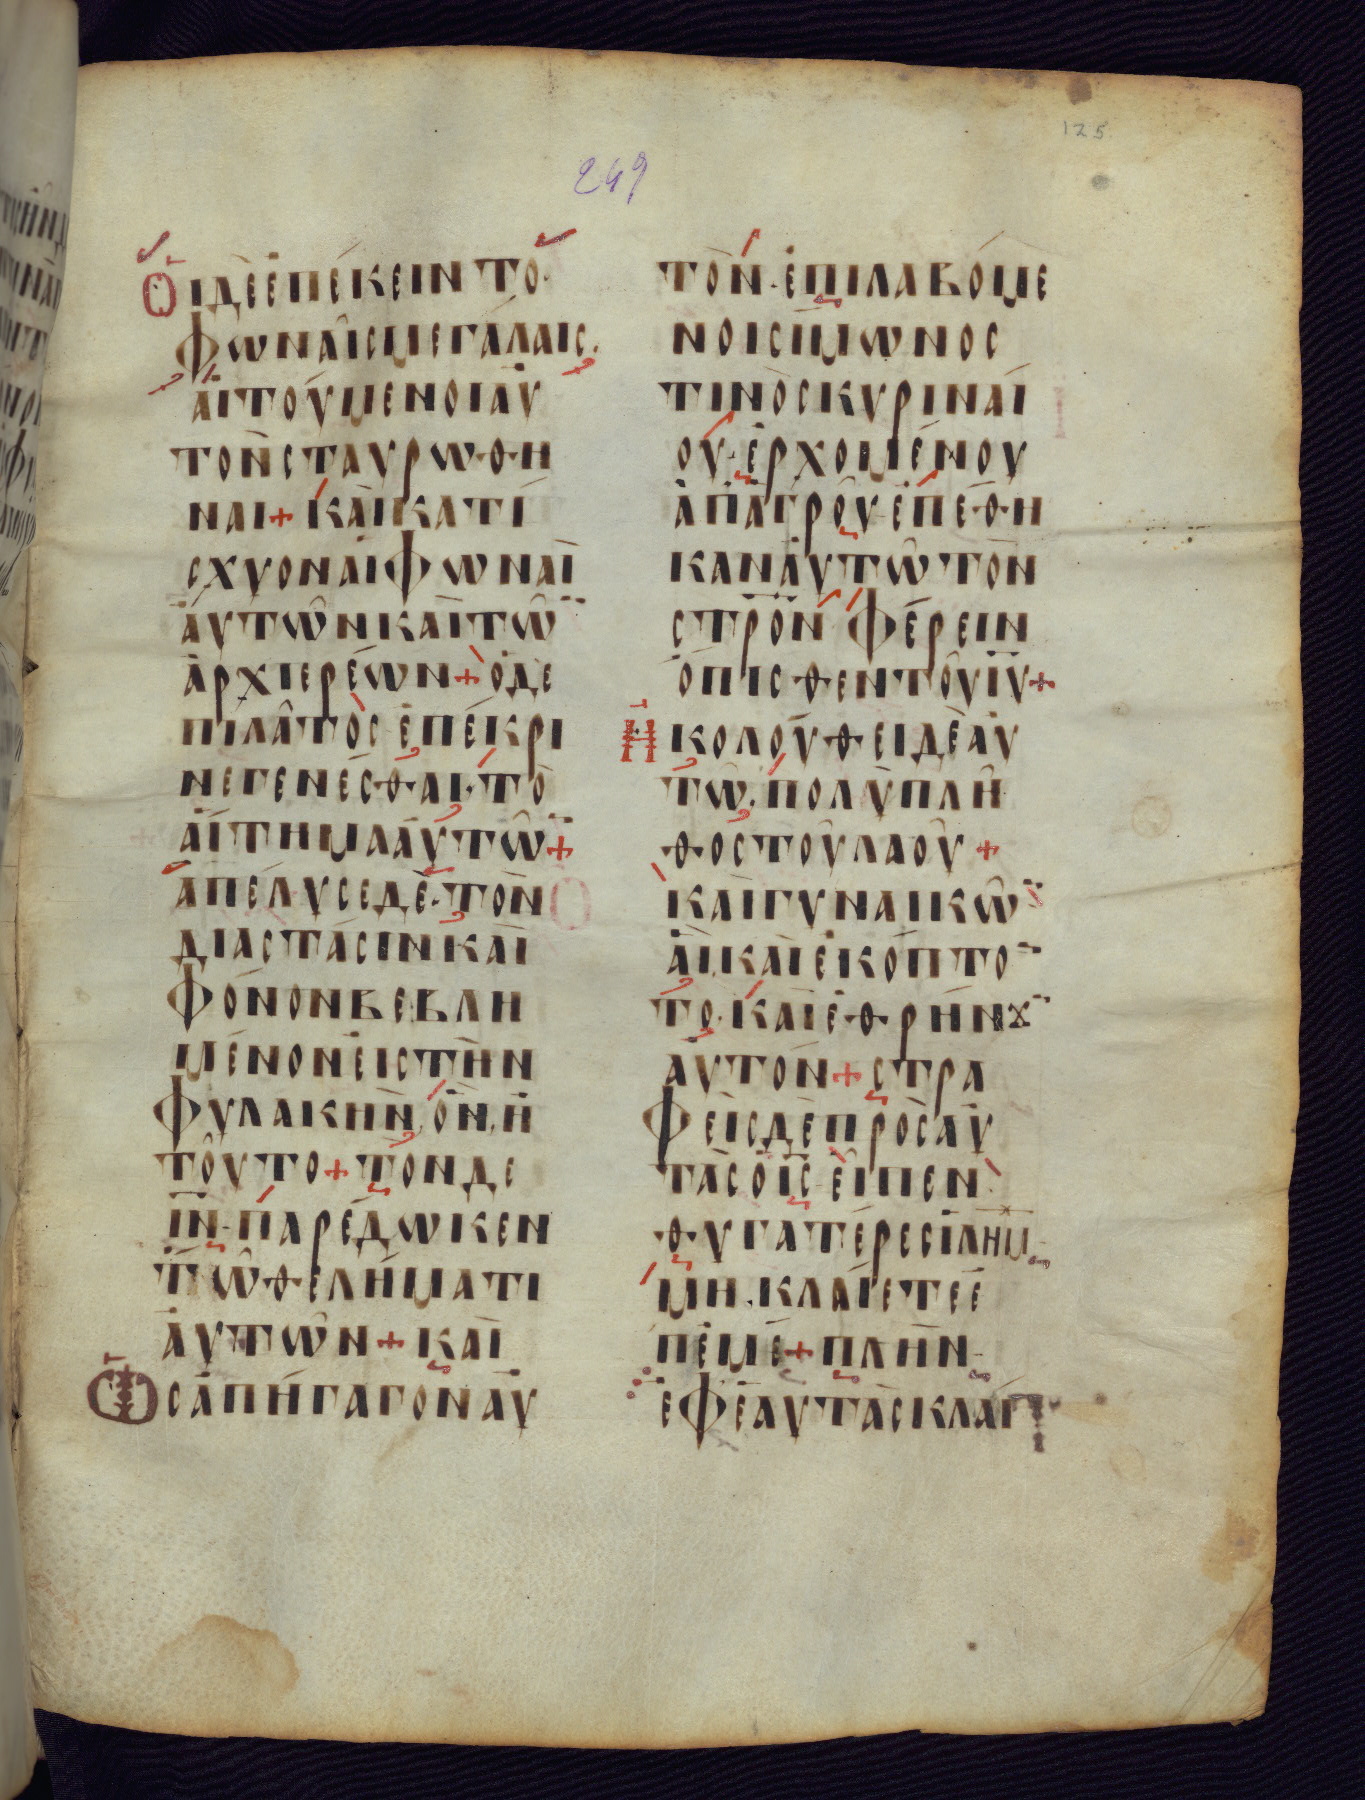 125
249
ὉΙΔΕΕΠΕΚΕΙΝΤΟ·
ΦΩΝΑΙСΜΕΓΑΛΑΙС.
ΑΙΤΟΥΜΕΝΟΙΑΥ
ΤΟΝСΤΑΥΡΩΘΗ
ΝΑΙ+ΚΑΙΚΑΤΙ
СΧΥΟΝΑΙΦΩΝΑΙ
ΑΥΤΩΝΚΑΙΤΩ̅
ΑΡΧΙΕΡΕΩΝ+ΟΔΕ
ΠΙΛΑΤΟСΕΠΕΚΡΙ
ΝΕΓΕΝΕСΘΑΙ·ΤΟ
ΑΙΤΗΜΑΑΥΤΩ̅+
ΑΠΕΛΥСΕΔΕ·ΤΟΝ
ΔΙΑСΤΑСΙΝΚΑΙ
ΦΟΝΟΝΒΕΒΛΗ
ΜΕΝΟΝΕΙСΤΗΝ
ΦΥΛΑΚΗΝ,ΟΝ,Η
ΤΟΥΤΟ+ΤΟΝΔΕ
ΙΝ̅·ΠΑΡΕΔΩΚΕΝ
ΤΩΘΕΛΗΜΑΤΙ
ΑΥΤΩΝ+ΚΑΙ
ΩСΑΠΗΓΑΓΟΝΑΥ
ΤΟΝ·ΕΠΙΛΑΒΟΜΕ
ΝΟΙСΙΜΩΝΟС
ΤΙΝΟСΚΥΡΙΝΑΙ
ΟΥ·ΕΡΧΟΜΕΝΟΥ
ΑΠΑΓΡΟΥ·ΕΠΕΘΗ
ΚΑΝΑΥΤΩΤΟΝ
СΤΡΟΝ̅ΦΕΡΕΙΝ
ΟΠΙСΘΕΝΤΟΥΙΥ̅+
ΗΚΟΛΟΥΘΕΙΔΕΑΥ
ΤΩ,ΠΟΛΥΠΛΗ
ΘΟСΤΟΥΛΑΟΥ+
ΚΑΙΓΥΝΑΙΚΩ̅
ΑΙ,ΚΑΙΕΚΟΠΤΟ̅
ΤΟ·ΚΑΙΕΘΡΗΝȢ̅
ΑΥΤΟΝ+СΤΡΑ
ΦΕΙСΔΕΠΡΟСΑΥ
ΤΑСΟΙС̅·ΕΙΠΕΝ·
ΘΥΓΑΤΕΡΕСΙΛΗΜ̅
ΜΗ.ΚΛΑΙΕΤΕΕ
ΠΕΜΕ+ΠΛΗΝ
ΕΦΕΑΥΤΑСΚΛΑΙ